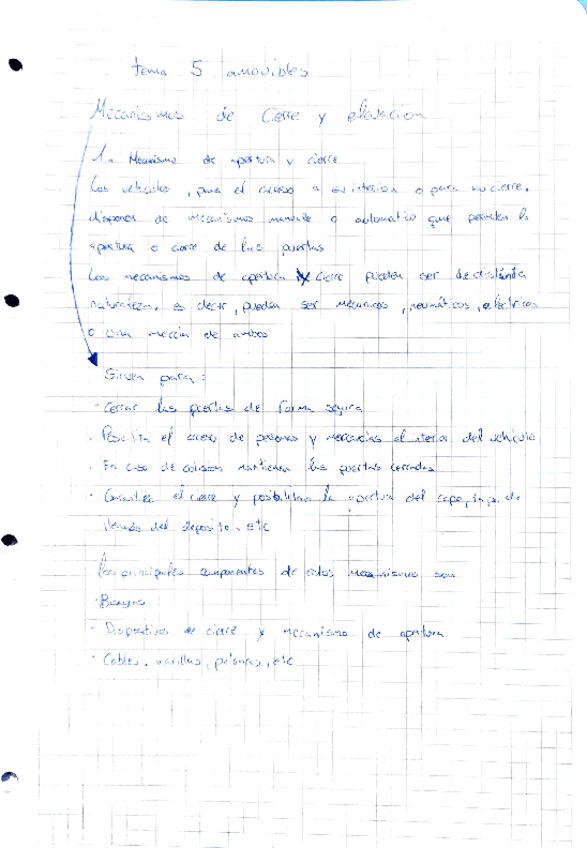 tema 5 amovibles
Mecanismos de Cierre y elevacion
1.- Mecanismo de apertura y cierre
Los vehiculos, para el acceso a su interior o para su cierre,
disponen de mecanismos manuales o automatico que permiten la
apertura o cierre de las puertas
Los mecanismos de apertura y cierre pueden ser de distinta
naturaleza, es decir, pueden ser mecanicos, neumáticos, electricos
o una mezcla de ambos
Sirven para:
- Cerrar las puertas de forma segura
. Posibilita el acceso de personas y mercancias al interior del vehiculo
. En caso de colision mantienen las puertas cerradas
. Garantiza el cierre y posibilitan la apertura del capo, tapa de
llenado del deposito, etc
Los principales componentes de estos mecanismos son
- Dispositivos de cierre y mecanismo de apertura
- Cables, varillas, etc